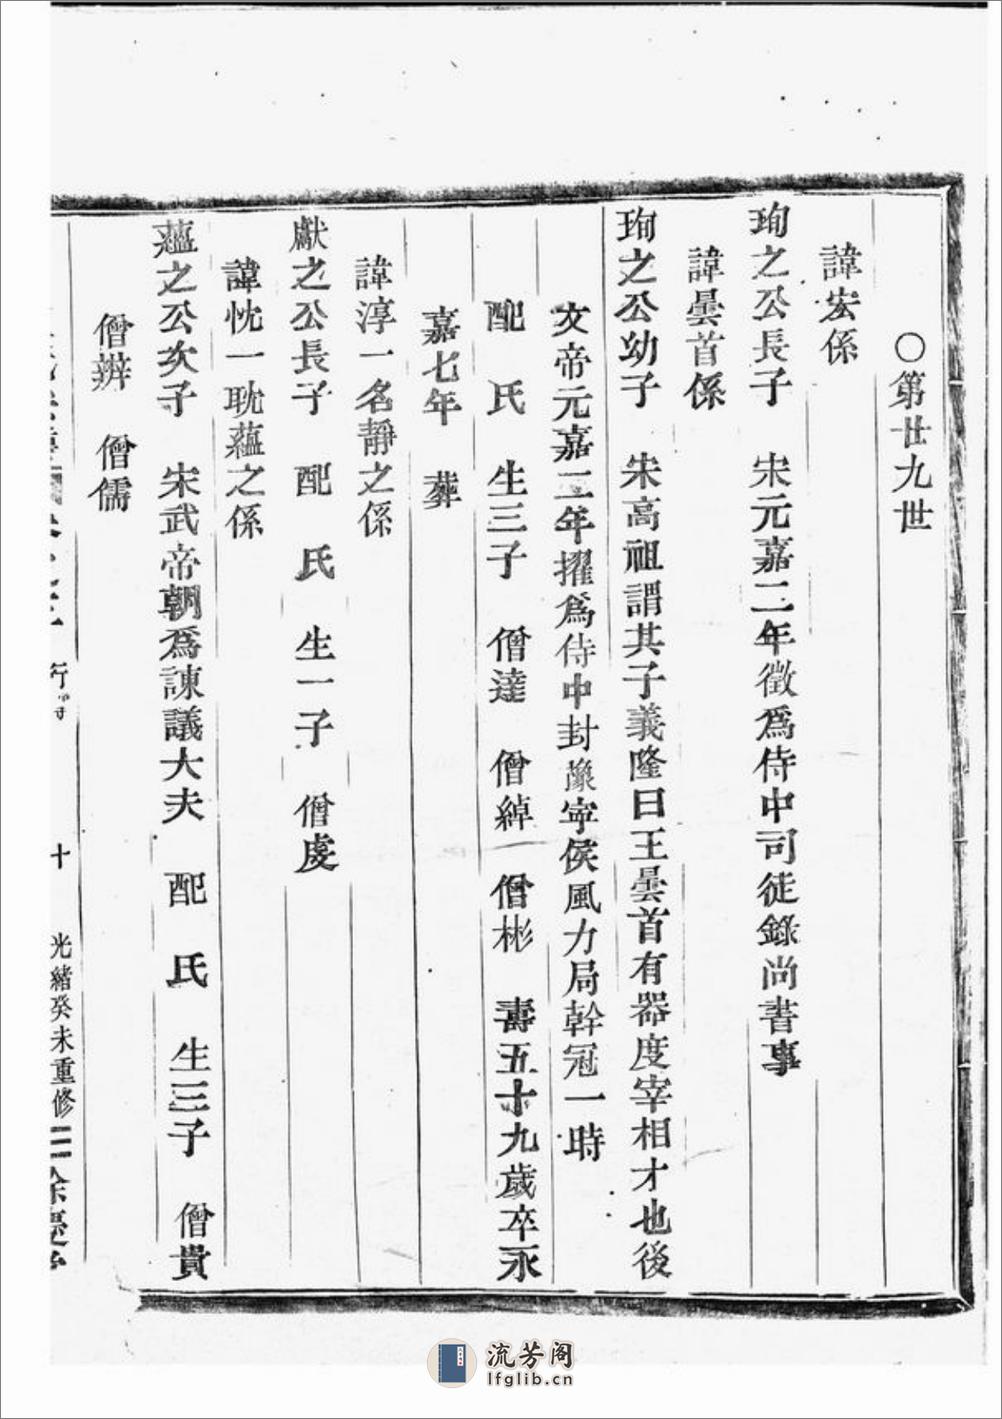 ○第卋九世
諱宏係
珣之公長子　宋元嘉二年徵爲侍中司徒錄尚書事
諱曇首係
珣之公幼子　宋高祖謂其子義隆曰王曇首有器度宰相才也後
文帝元嘉二年擢爲侍中封豫寧侯風力局幹冠一時
配　氏　生三子　僧達　僧綽　僧彬　壽五十九歲卒永
嘉七年　葬
諱淳一名靜之係
獻之公長子　配　氏　生一子　僧虔
諱忱一耽蘊之係
蘊之公次子　宋武帝朝爲諫議大夫　配　氏　生三子　僧貴
僧辨　僧儒
十　光緒癸未重修
流芳阁
lfglib.cn